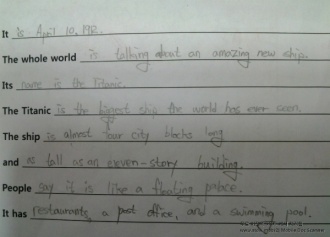 It is April 10, 1912.
The whole world is talking about an amazing new ship.
Its name is the Titanic.
The Titanic is the biggest ship the world has ever seen.
The ship is almost four city blocks long
and as tall as an eleven-story building.
People say it is like a floating palace.
It has restaurants, a post office, and a swimming pool.